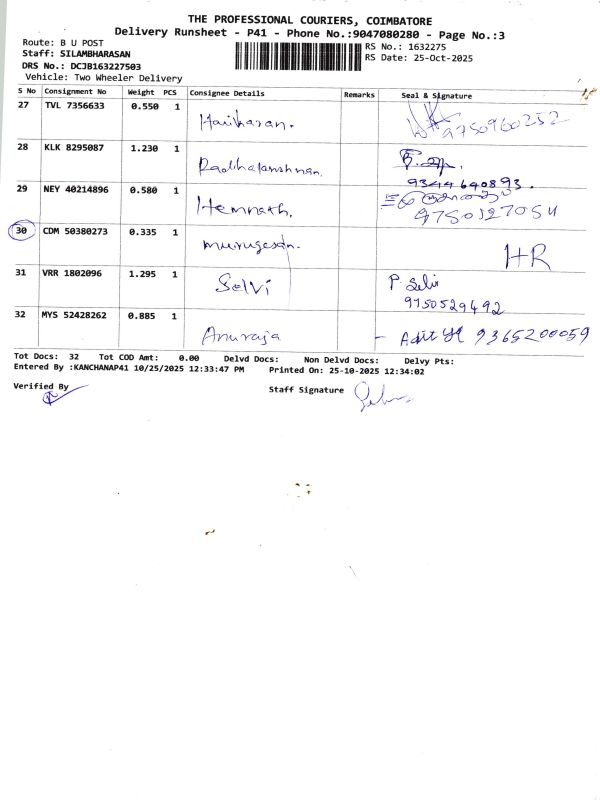 THE PROFESSIONAL COURIERS, COIMBATORE
Delivery Runsheet - P41 - Phone No.:9047080280 - Page No.:3
Route: B U POST
RS No.: 1632275
Staff: SILAMBHARASAN
RS Date: 25-Oct-2025
DRS No.: DCJB163227503
Vehicle: Two Wheeler Delivery
S No Consignment No Weight PCS Consignee Details Remarks Seal & Signature
27 TVL 7356633 0.550 1 Hariharan. 9750960252
28 KLK 8295087 1.230 1
9344640893.
29 NEY 40214896 0.580 1 Hemnath. 9750127054
30 CDM 50380273 0.335 1 murugesan. HR
31 VRR 1802096 1.295 1 Selvi P. Selvi
9750529492
32 MYS 52428262 0.885 1 Anuraja - 9365200059
Tot Docs: 32 Tot COD Amt: 0.00 Delvd Docs: Non Delvd Docs: Delvy Pts:
Entered By :KANCHANAP41 10/25/2025 12:33:47 PM Printed On: 25-10-2025 12:34:02
Verified By Staff Signature